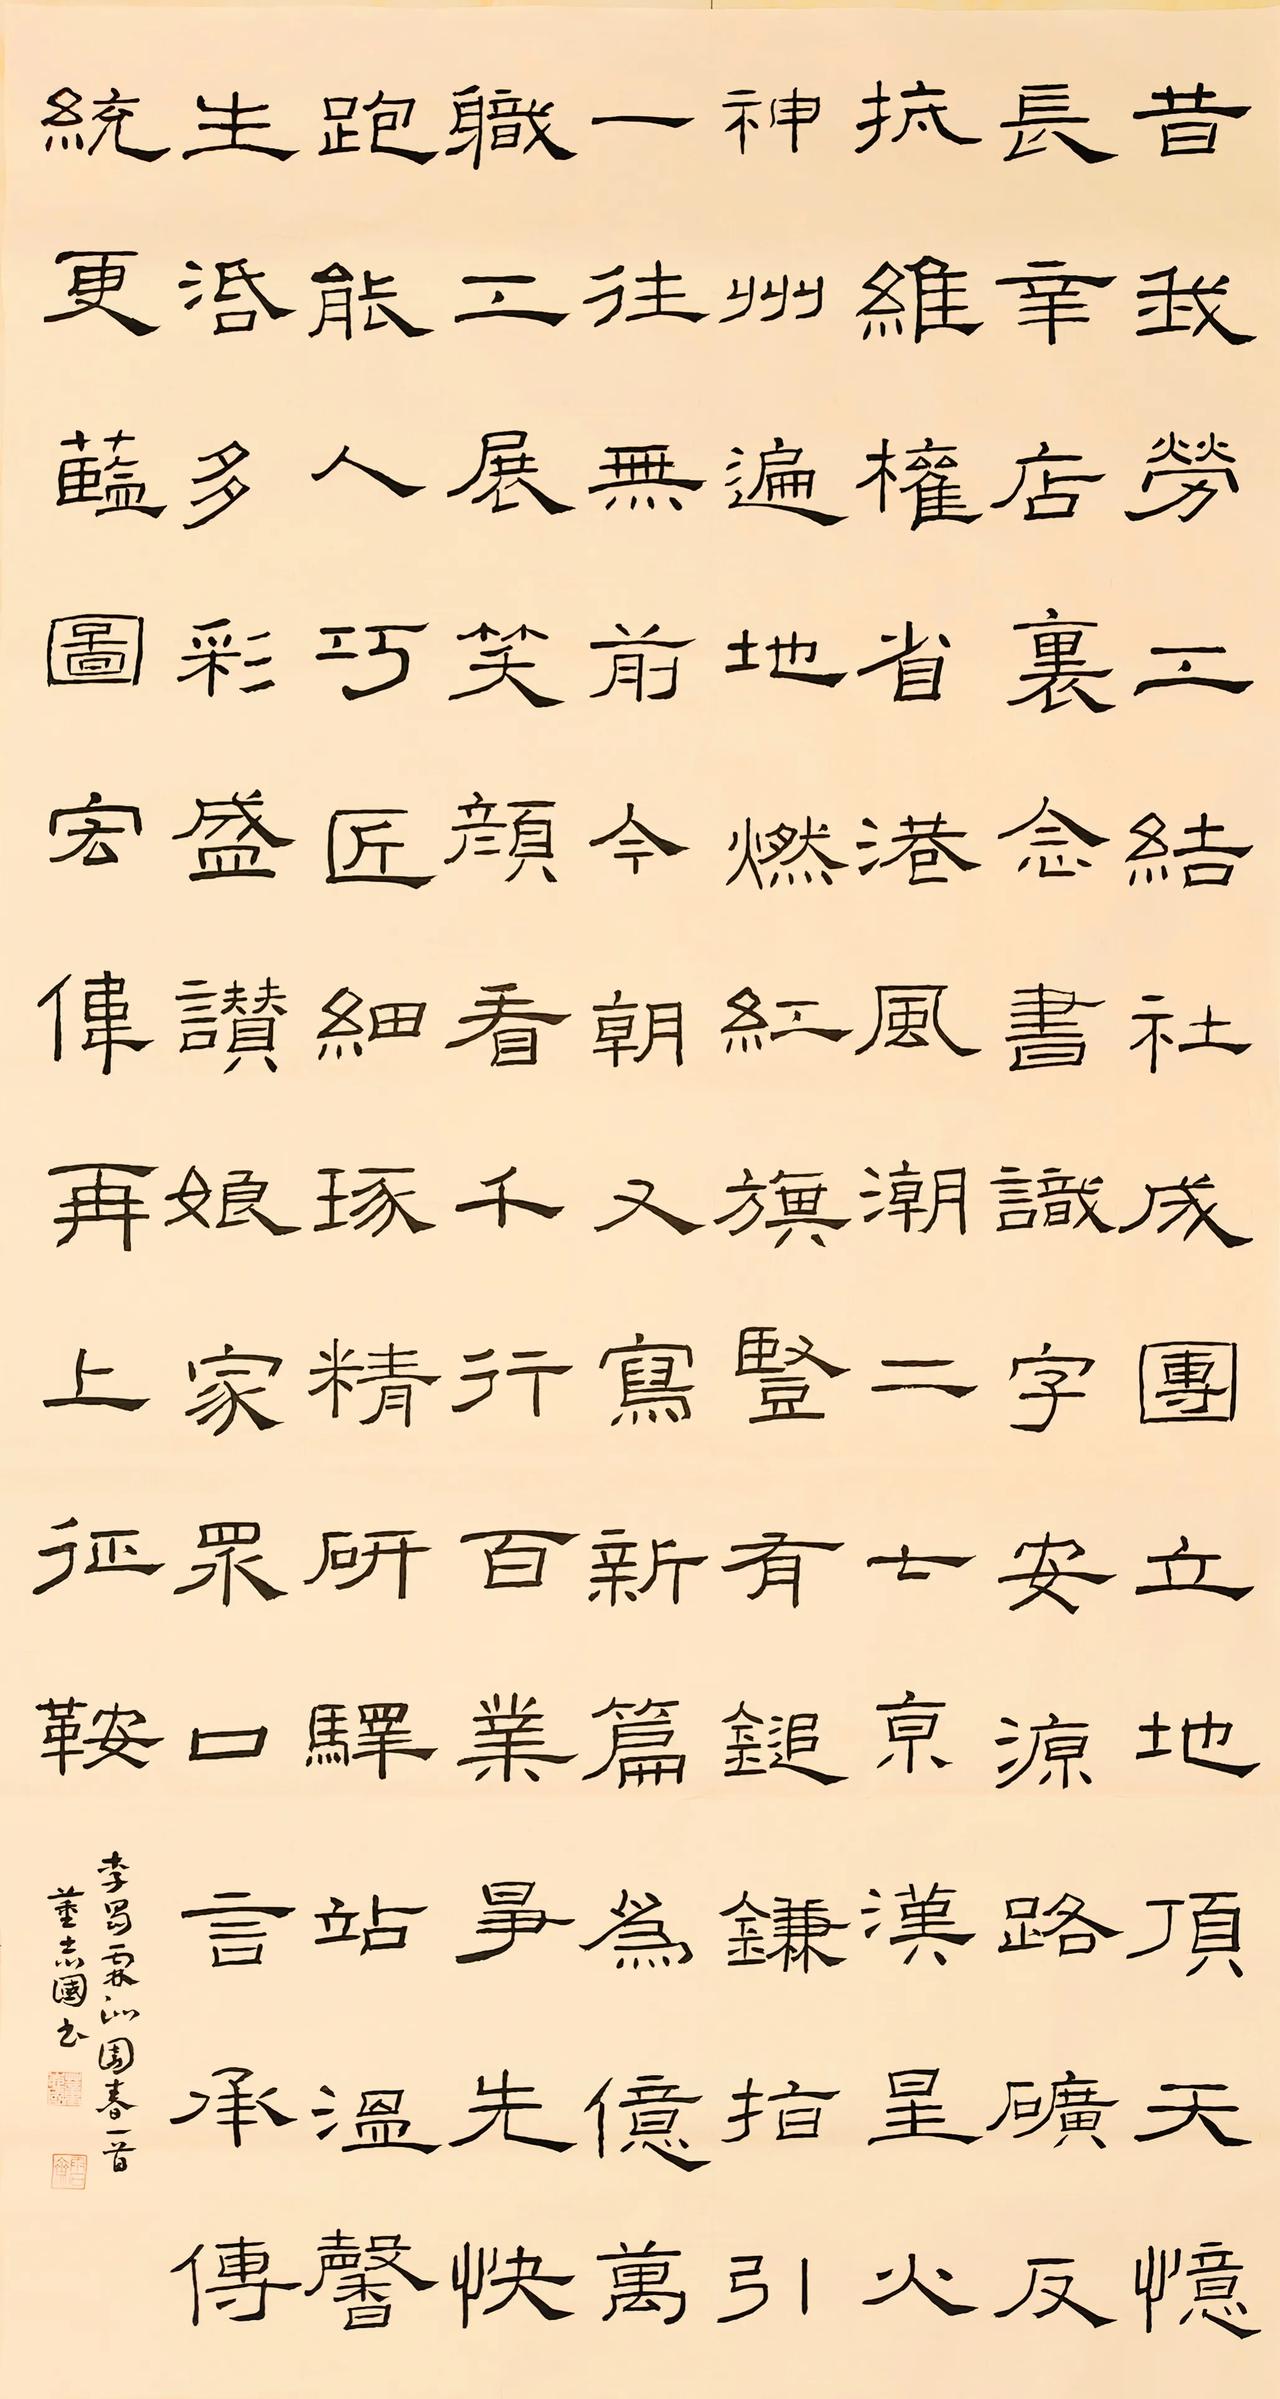 昔我勞工結社成團立地頂天憶
長辛店裏念書識字安源路礦反
抵維權省港風潮二七京漢星火
神州遍地燃紅旗豎有鎚鎌指引
一往無前今朝又寫新篇為億萬
職工展笑顏看千行百業爭先快
跑能人巧匠細琢精研驛站溫馨
生活多彩盛讚娘家眾口言承傳
統更藍圖宏偉再上征鞍
李蜀霖沁園春一首
董志國书